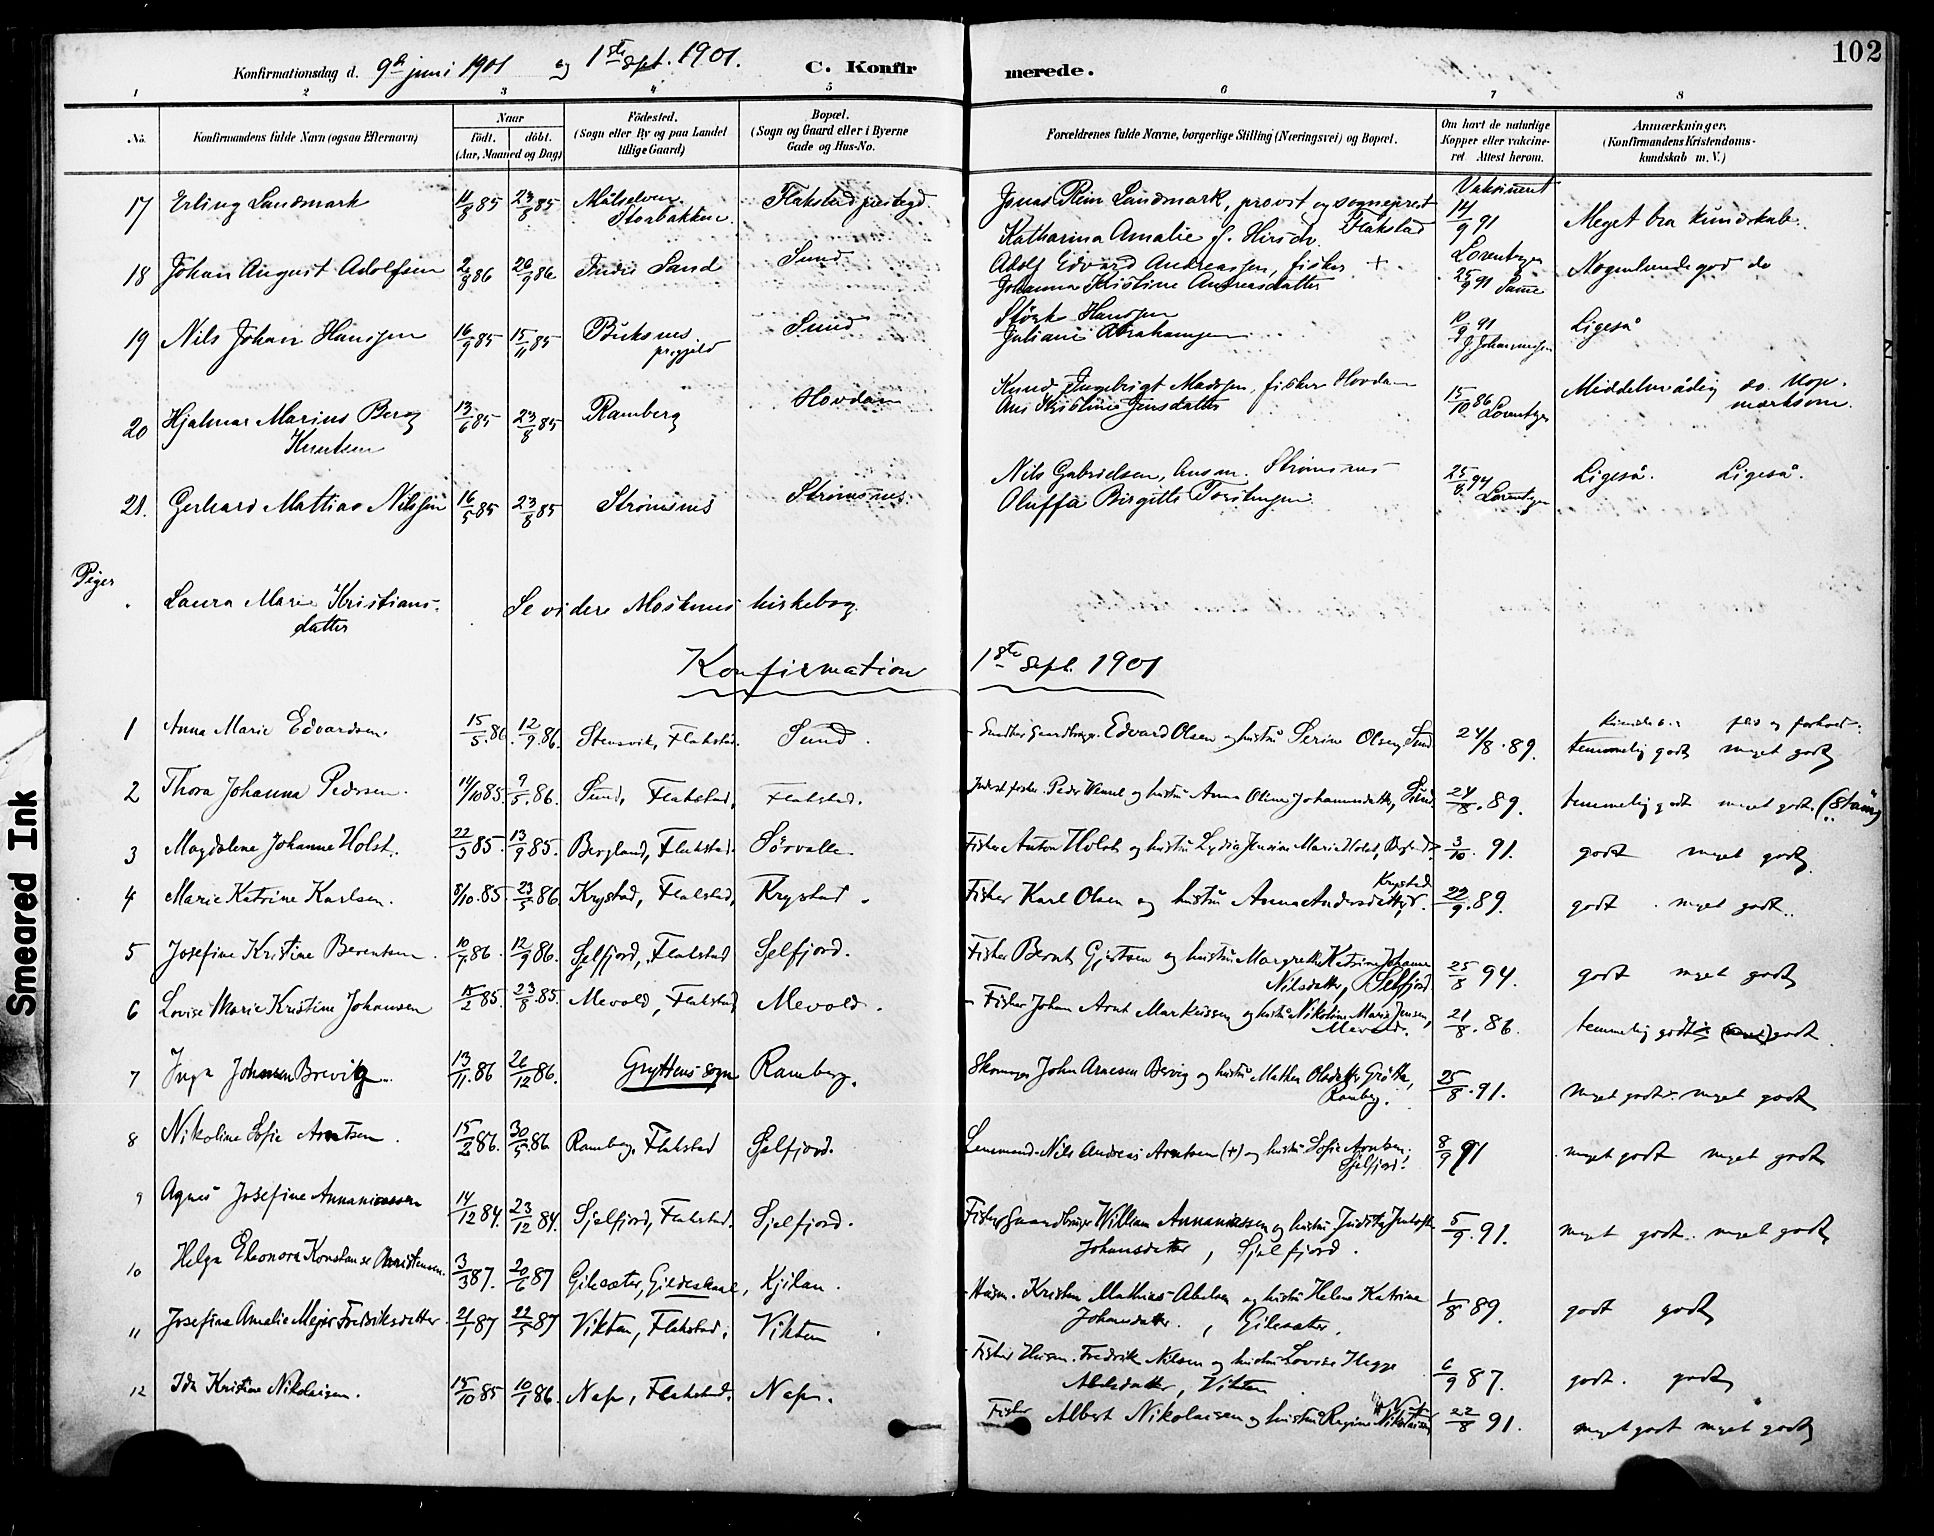 102
Konfirmationsdag d. 9de juni 1901 og 1ste sept. 1901. C. Konfirmerede.
1 2 3 4 5 6 7 8
No. Konfirmandens fulde Navn (ogsaa Efternavn) Naar født. døbt. (Aar, Maaned og Dag) Fødested. (Sogn eller By og paa Landet tillige Gaard) Bopæl. (Sogn og Gaard eller i Byerne Gade og Hus-No. Forældrenes fulde Navne, borgerlige Stilling (Næringsvei) og Bopæl. Om havt de naturlige Kopper eller vakcineret. Attest herom. Anmærkninger. (Konfirmandens Kristendomskundskab m. V.)
17 Erling Landmark 11/8 85 23/8 85 Målselven Storbakken Flakstad prestegd Jonas Rein Landmark, provst og sogneprest Flakstad Vaksineret 14/9 91 Meget bra kundskab.
Katharina Amalie f. Hirsch
18 Johan August Adolfsen 2/8 86 26/9 86 Indre Sand Sund Adolf Edvard Andreassen, fisker + Lorentzen 25/9 91 Samme Nogenlunde god do
Johanna Kristine Andreasdatter
19 Nils Johan Hansen 16/9 85 15/11 85 Buksnes prgjeld Sund Hansen 10/9 91 J. Johannesen Ligeså
Juliane Abrahamsen
20 Hjalmar Marius Berg Knutsen 13/6 85 23/8 85 Ramberg Hovdan Knud Ingebrigt Madsen, fisker Hovdan 15/10 86 Lorentzen Middelmådig do. Opmerksom.
Ane Kristine Jensdatter
21. Gerhard Mattias Nilssen 16/5 85 23/8 85 Strømsnes Strømsnes Nils Gabrielsen, Strømsnes 25/8 94 Lorentzen Ligeså. Ligeså.
Oluffa Birgitte Torstensen
Piger
Laura Marie Kristiansdatter Se videre Moskenes kirkebog
Konfirmation 1ste sept. 1901
1 Anna Marie Edvardsen. 15/5. 86. 12/9. 86. Stensvik, Flakstad. Sund. Gaardbruger Edvard Olsen og hustru Serine Olsen, Sund 24/8. 89. temmelig godt meget godt
2 Thora Johanna Pedersen. 14/10 85. 9/5. 86. Sund, Flakstad, Flakstad. Inderst fisker Peder og hustru Anna Oline Johannesdatter, Sund. 24/8. 89. temmelig godt meget godt.
3 Magdalene Johanne Holst. 22/3 85. 13/9 85. Bergland, Flakstad. Sørvalle. Fisker Anton Holst og hustru Lydia Jensine Marie Holst, 3/10. 91. godt meget godt
4 Marie Katrine Karlsen. 8/10. 85. 23/5 86. Krystad, Flakstad, Krystad. Fisker Karl Olsen og hustru Anna Andersdatter, Krystad. 22/9. 89. godt. meget godt.
5 Josefine Kristine Berentsen. 10/7. 86. 12/9 86. Selfjord, Flakstad Selfjord. Fisker Bernt Gjertsen og hustru Margrethe Katrine Johanne Nilsdatter, Selfjord. 25/8 94. godt meget godt
6 Lovise Marie Kristine Johansen 15/2 85. 23/8. 85. Mevold, Flakstad Mevold. Fisker Johan Arnt Markussen og hustru Nikoline Marie Jensen, Mevold. 21/8. 86. temmelig godt godt
7 Inga Johansen Brevig. 13/11. 86 26/12 86. Gryttens sogn Ramberg. Skomager John Arnesen Bervig og hustru Mathea Olsdatter Grøtta, Ramberg. 25/8. 91. meget godt. meget godt
8 Nikoline Sofie Arntsen. 15/2 86. 30/5. 86 Ramberg, Flakstad Selfjord. Lensmand Nils Andreas Arntsen (+) og hustru Sofie Arntsen, Selfjord. 8/9 91 meget godt meget godt
9 Agnes Josefine Annaniassen 14/12 84. 23/12 84. Sjelfjord, Flakstad. Sjelfjord. Fisker Gaardbruger William Annaniassen og hustru Judith Johansdatter, Sjelfjord. 5/9. 91. meget godt. meget godt
10 Helga Eleonora Konstanse Christensen 3/3 87. 20/6 87 Gilesater, Gildeskaal, Kjilan. Husm. Kristen Mathias Abelsen og hustru Helene Katrine Johansdatter, Gilesater. 1/8 89. godt godt
11 Josefine Amalie Mejer Fredriksdatter. 21/1 87 22/5 87 Vikten, Flakstad, Vikten Fisker Husm. Fredrik Nilsen og hustru Lovise Hegge Abelsdatter, Vikten 6/9 87. godt. godt
12 Ida Kristine Nikolaisen. 15/10 85 10/1 86. Nap, Flakstad. Nap. Fisker Albert Nikolaisen og hustru Regine Nikolaisen Nap 22/8 91. meget godt meget godt
Smeared Ink